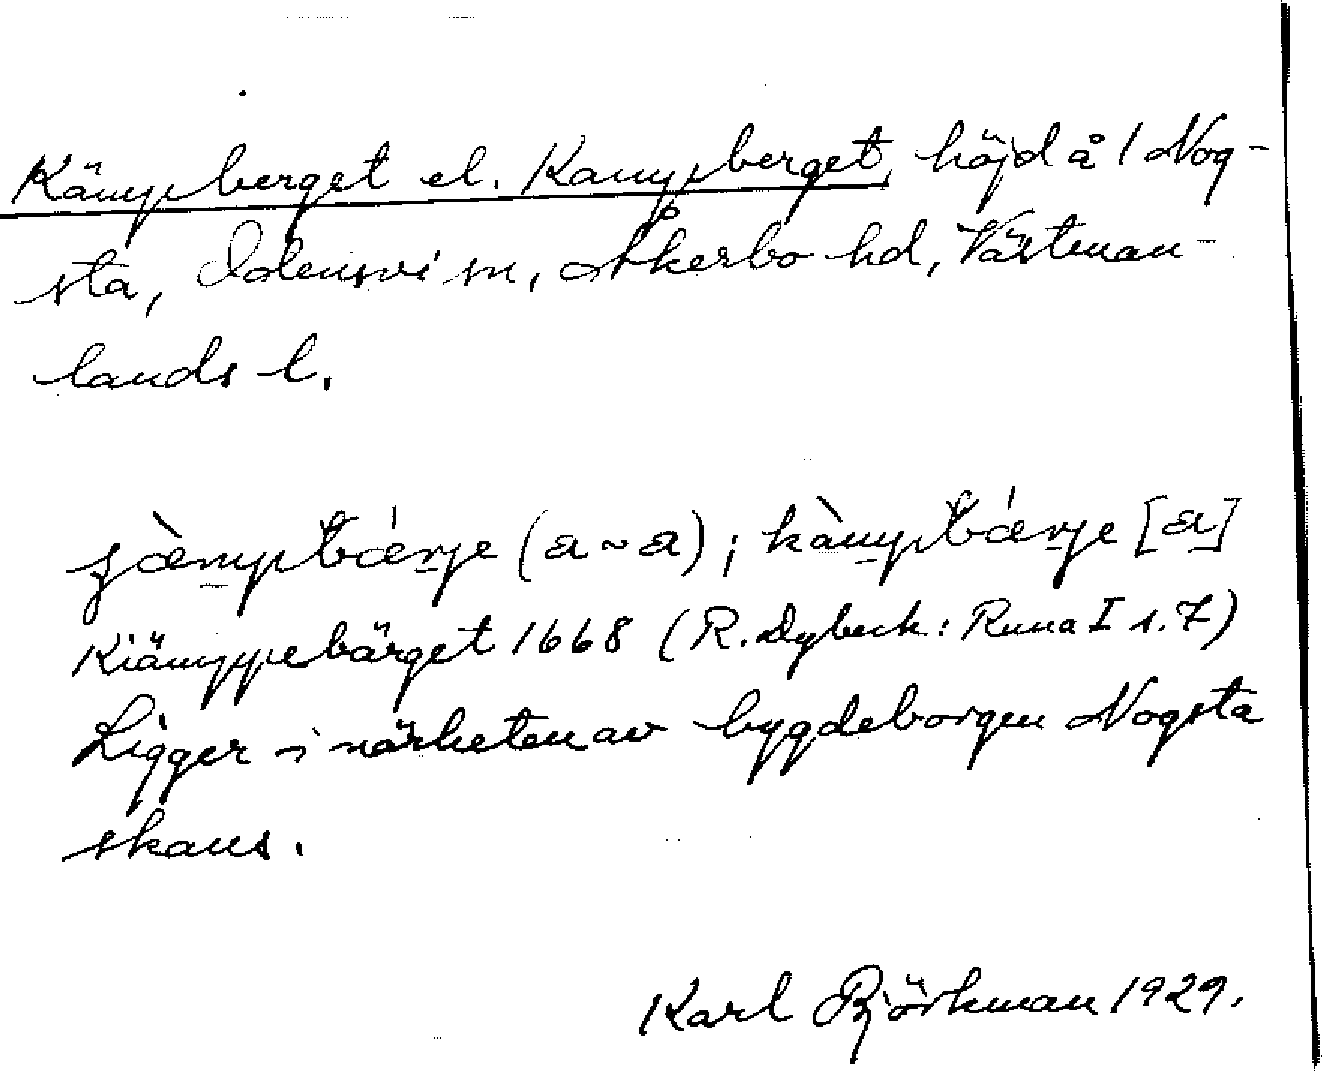 Kämpberget el. Kampberget, höjd å 1 Nog-
sta, Odensvi sn, Åkerbo hd, Västman-
lands l.
Kiämppebärget 1668 (R. Dybeck: Runa I s. 7)
Ligger i närheten av bygdeborgen Nogsta
skans.
Karl Björkman 1929.